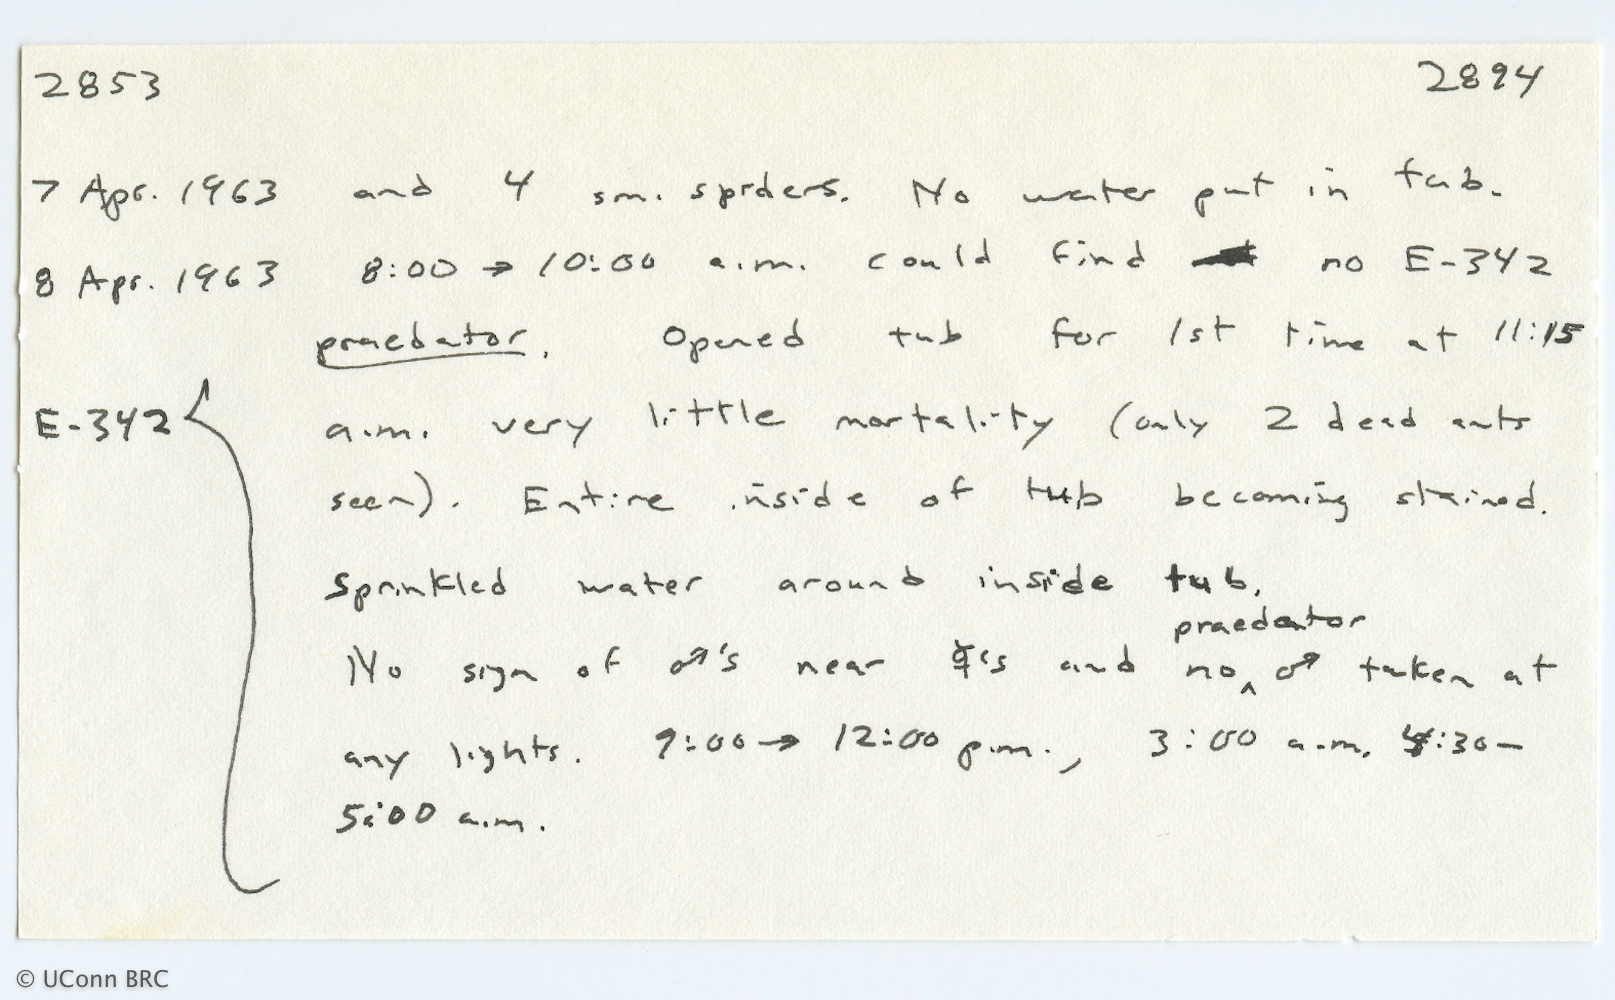 2853 2894
7 Apr. 1963 and 4 sm. spiders. No water put in tub.
8 Apr. 1963 8:00 → 10:00 a.m. could find no E-342
praedator. Opened tub for 1st time at 11:15
E-342 a.m. very little mortality (only 2 dead ants
seen). Entire inside of tub becoming stained.
Sprinkled water around inside tub.
praedator
No sign of ♂'s near ☿'s and no ‸ ♂ taken at
any lights. 9:00 → 12:00 p.m., 3:00 a.m. 4:30-
5:00 a.m.
© UConn BRC